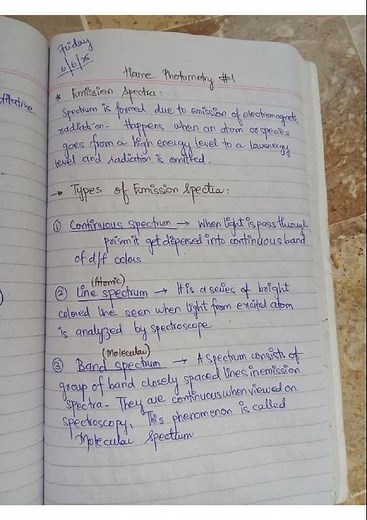 Friday
Flame Photometry #1
* Emission Spectra:
Spectrum is formed due to emission of electromagnetic
radiation. Happens when an atom or species
goes from a high energy level to a lower energy
level and radiation is emitted.
→ Types of Emission Spectra:
① Continuous spectrum → When light is pass through
prism it get dispersed into continuous band
of d/f colors
(Atomic)
② Line spectrum → It is a series of bright
colored line seen when light from excited atom
is analyzed by spectroscope
(Molecular)
③ Band spectrum → A spectrum consists of
group of band closely spaced lines in emission
spectra. They are continuous when viewed on
spectroscopy, This phenomenon is called
Molecular Spectrum